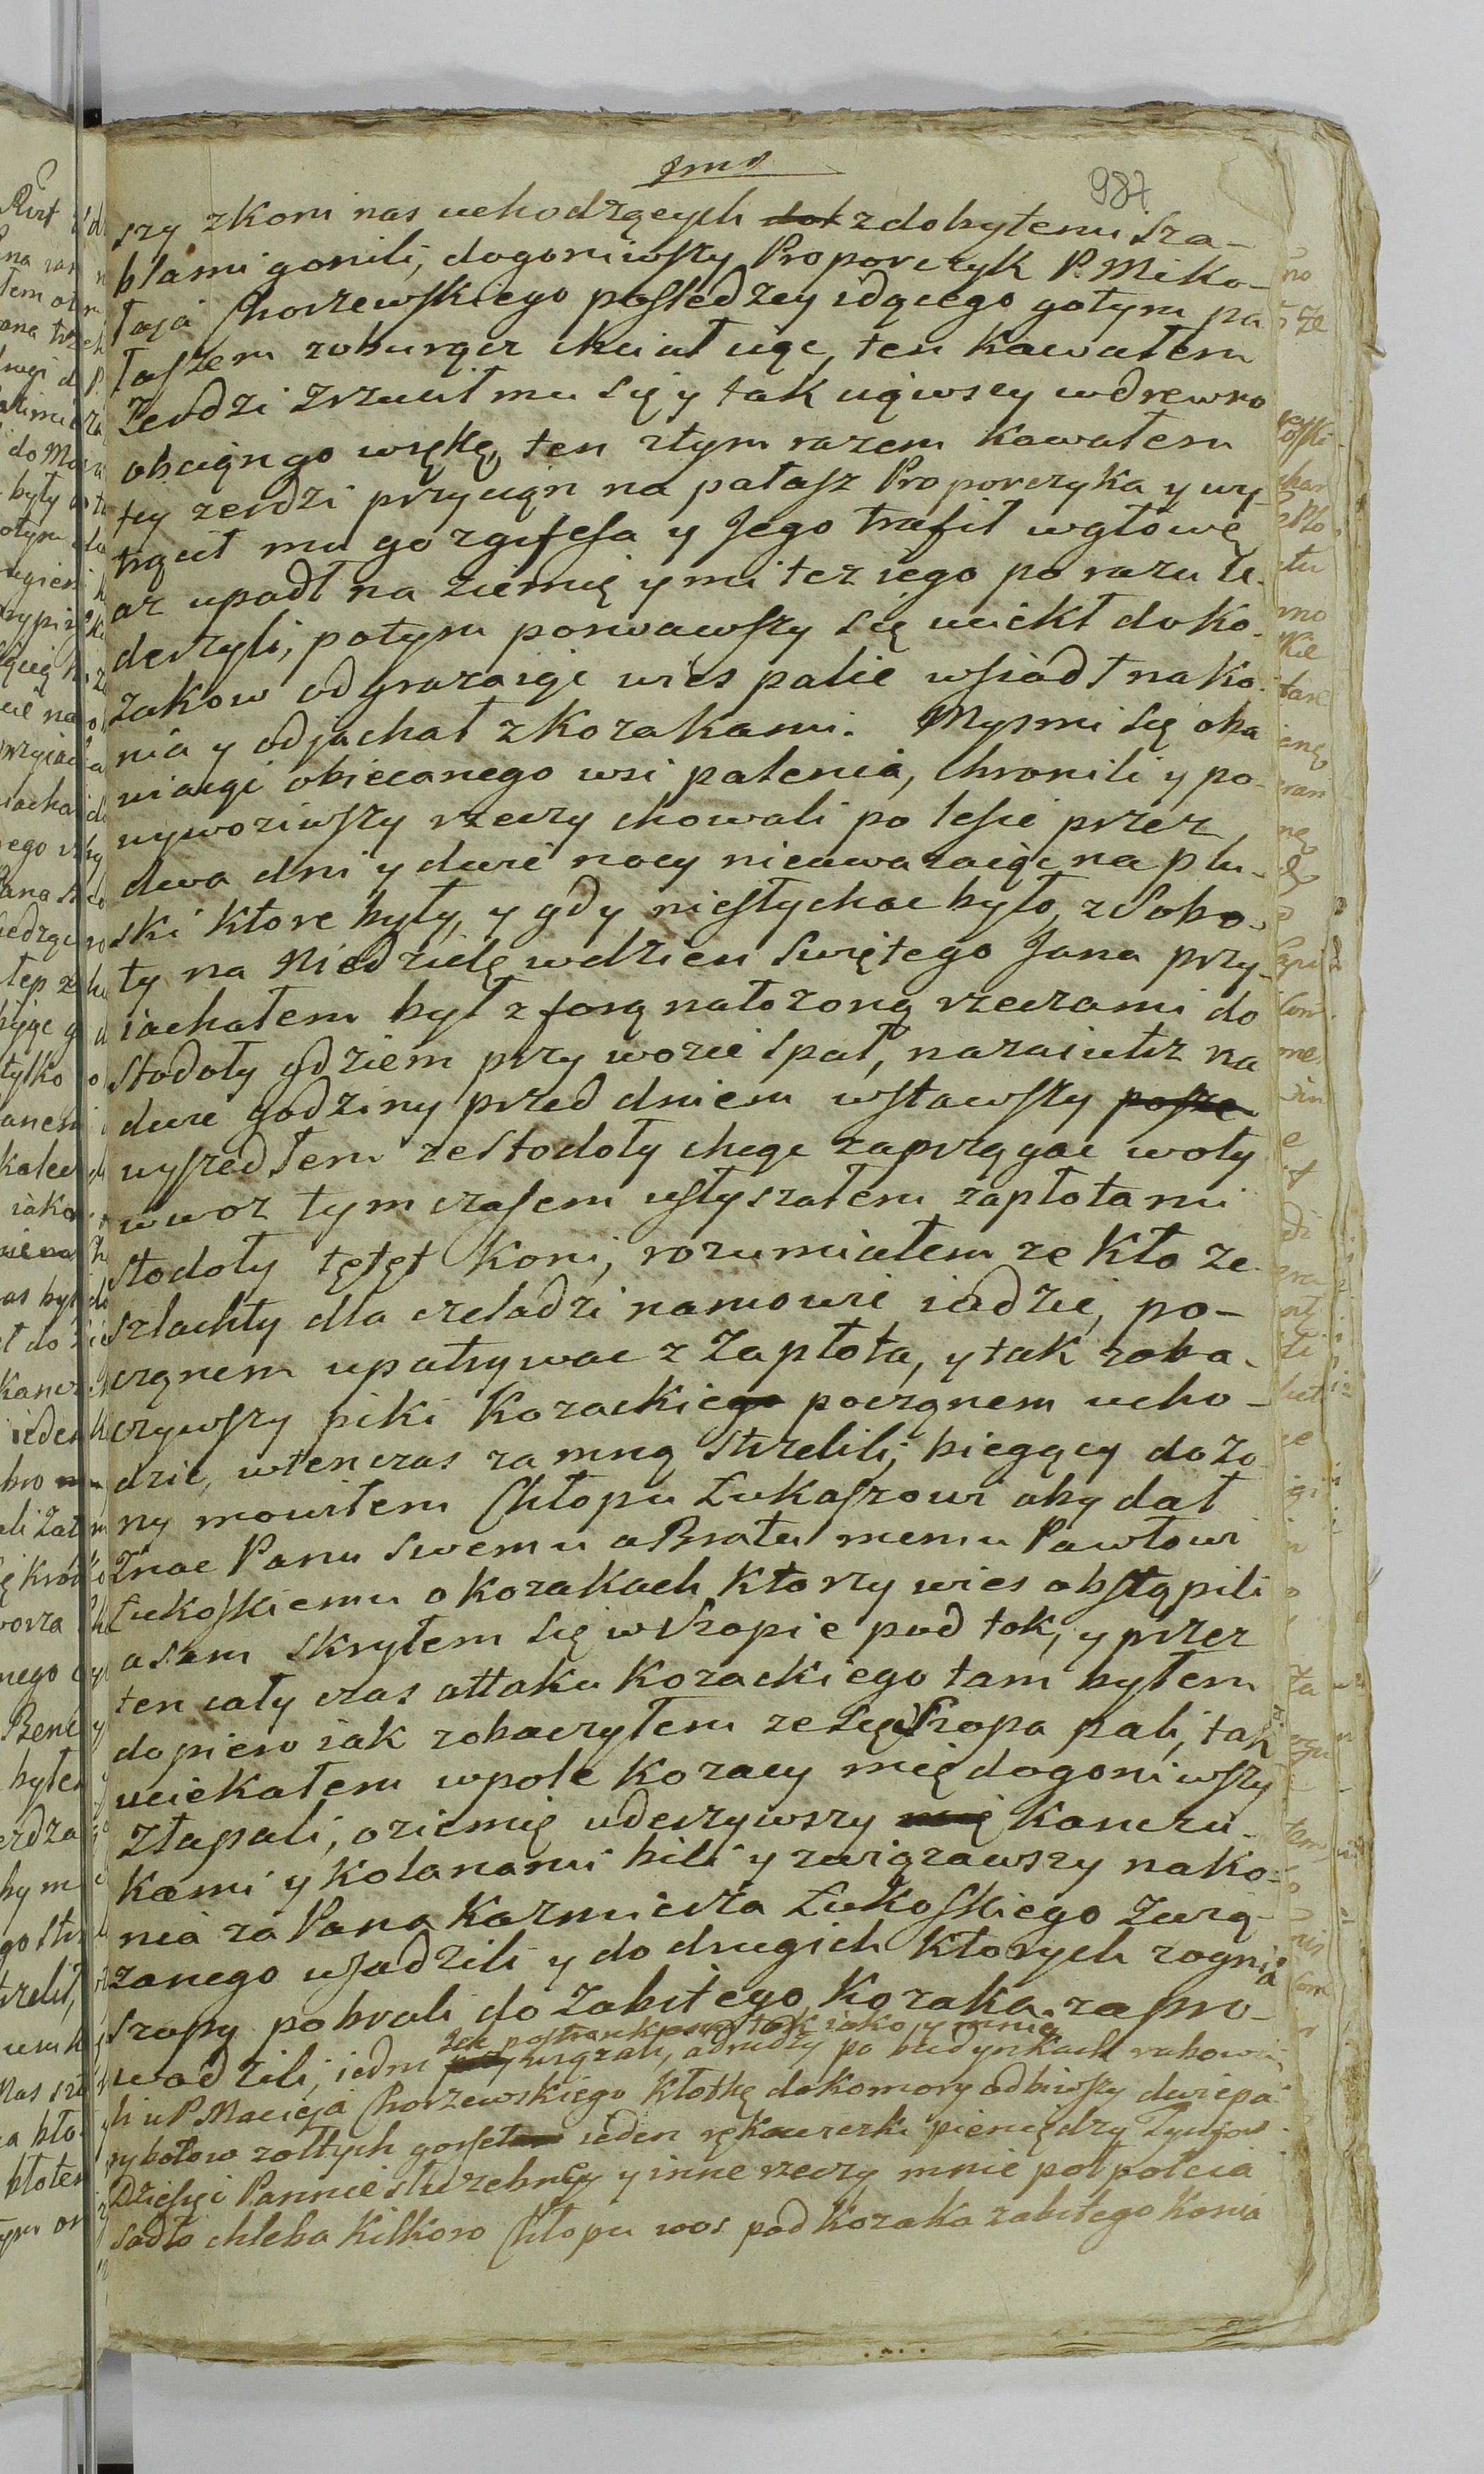 987
szy zkoni nas uchodzących dot zdobytemi sza-
blami gonili, dogoniwszy Proporczyk P. Miko-
łaja Chorzewskiego posledzey idącego gołym pa
łaszem zoburącz chciał uąc, ten kawałem
Zerdzi zrzucił mu się y tak uąwszy wdrewno
obciąn go wrękę, ten złym razem kawałem
tey zerdzi przyciąn na pałasz Proporczyka y wy
trącił mu go zgifesa y Jego trafił wgłowę
az upadł na ziemię y mi tez iego po razu u-
derzyli, potym porwawszy się uciekł do ko-
zakow odgrazaiąc wies palic wsiadł na ko-
nia y odjachał zkozakami. Mysmi się oba
wiaiąc obiecanego wsi palenia, chronili y po-
wywoziwszy rzeczy chowali po lesie przez
dwa dni y dwie nocy nieuwazaiąc na plu-
ski ktore były, y gdy niesłychac było, z Sobo-
ty na Niedzielę wdzien Swiętego Jana przy-
iachałem był z forą nałozoną rzeczami do
stodoły gdziem przy wozie spał, nazaiutrz na
dwie godziny przed dniem wstawszy posze
wyszedłem ze stodoły chcąc zaprzągac woły
wwoz tym czasem usłyszałem zapłotami
stodoły tętęt koni, rozumiałem ze kto ze
szlachty dla czeladzi namowie iedzie, po-
cząnem upatrywac z Zapłota, y tak zoba-
czywszy piki Kozackiego począnem ucho-
dzic, wtenczas za mną strzelili, biegący do zo
ny mowiłem Chłopu Łukaszowi aby dał
Znac Panu swemu a Bratu memu Pawłowi
Łukoskiemu o kozakach ktorzy wies obstąpili
a sam skryłem się w Szopie pod tok, y przez
ten cały czas attaku kozackiego tam byłem
dopiero iak zobaczyłem ze się Szopa pali, tak
uciekałem wpole kozacy mię dogoniwszy
Złapali, oziemię uderzywszy mię kanczu-
kami y kolanami bili y związawszy na ko-
nia za Pana Kazmierza Łukoskiego zwią-
zanego wsadzili y do drugich ktorych zognia
szopy pobrali do zabitego kozaka zapro-
wadzili, iedni wiązali, a drudzy po budynkach rabowa
li u P. Macieja Chorzewskiego Kłotkę do komory odbiwszy dwie pa-
ry botow zołtych gorset ieden rękaweczki pieniędzy Tynfow
Dziesięc Pannie słuzebney y inne rzeczy mnie poł połcia
sadło chleba kilkoro Chłopu woz pod kozaka zabitego konia